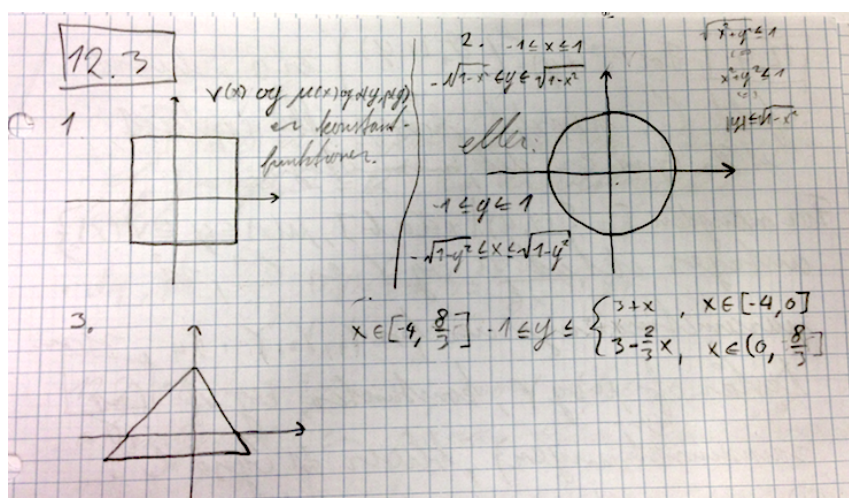 12.3
1
v(x) og μ(x) og
er konstant-
funktioner.
2. -1 ≤ x ≤ 1
-√(1-x²) ≤ y ≤ √(1-x²)
eller:
-1 ≤ y ≤ 1
-√(1-y²) ≤ x ≤ √(1-y²)
√(x²+y²) ≤ 1
x²+y² ≤ 1
|y| ≤ √(1-x²)
3.
x ∈ [-4, 8/3] -1 ≤ y ≤ { 3+x, x ∈ [-4, 0]
3 - 2/3 x, x ∈ (0, 8/3]